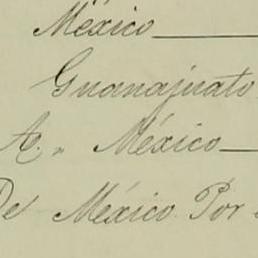 México
Guanajuato
A. „ México
De México Por